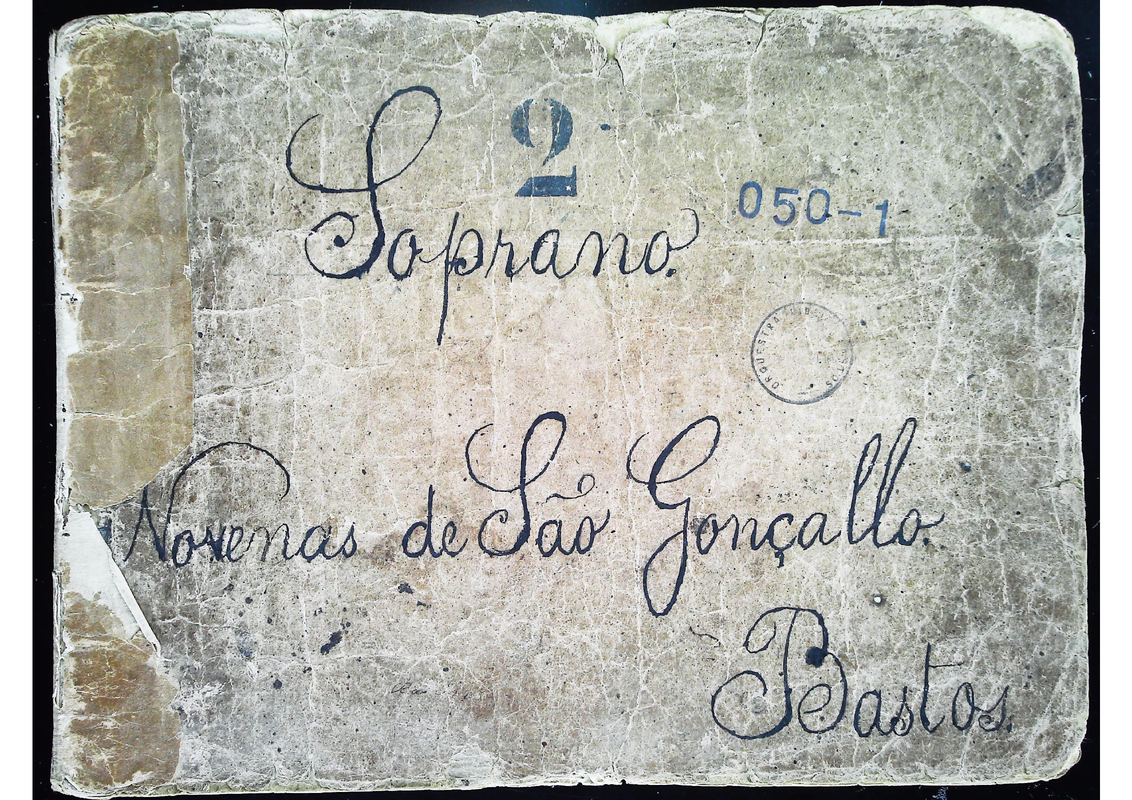 2
Soprano.
050-1
ORQUESTRA
Novenas de São Gonçallo.
Bastos.